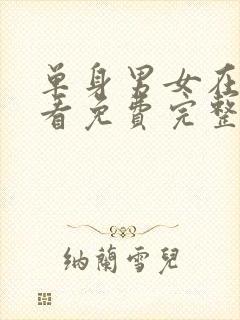 单身男女在
看免費完整
纳蘭雪兒